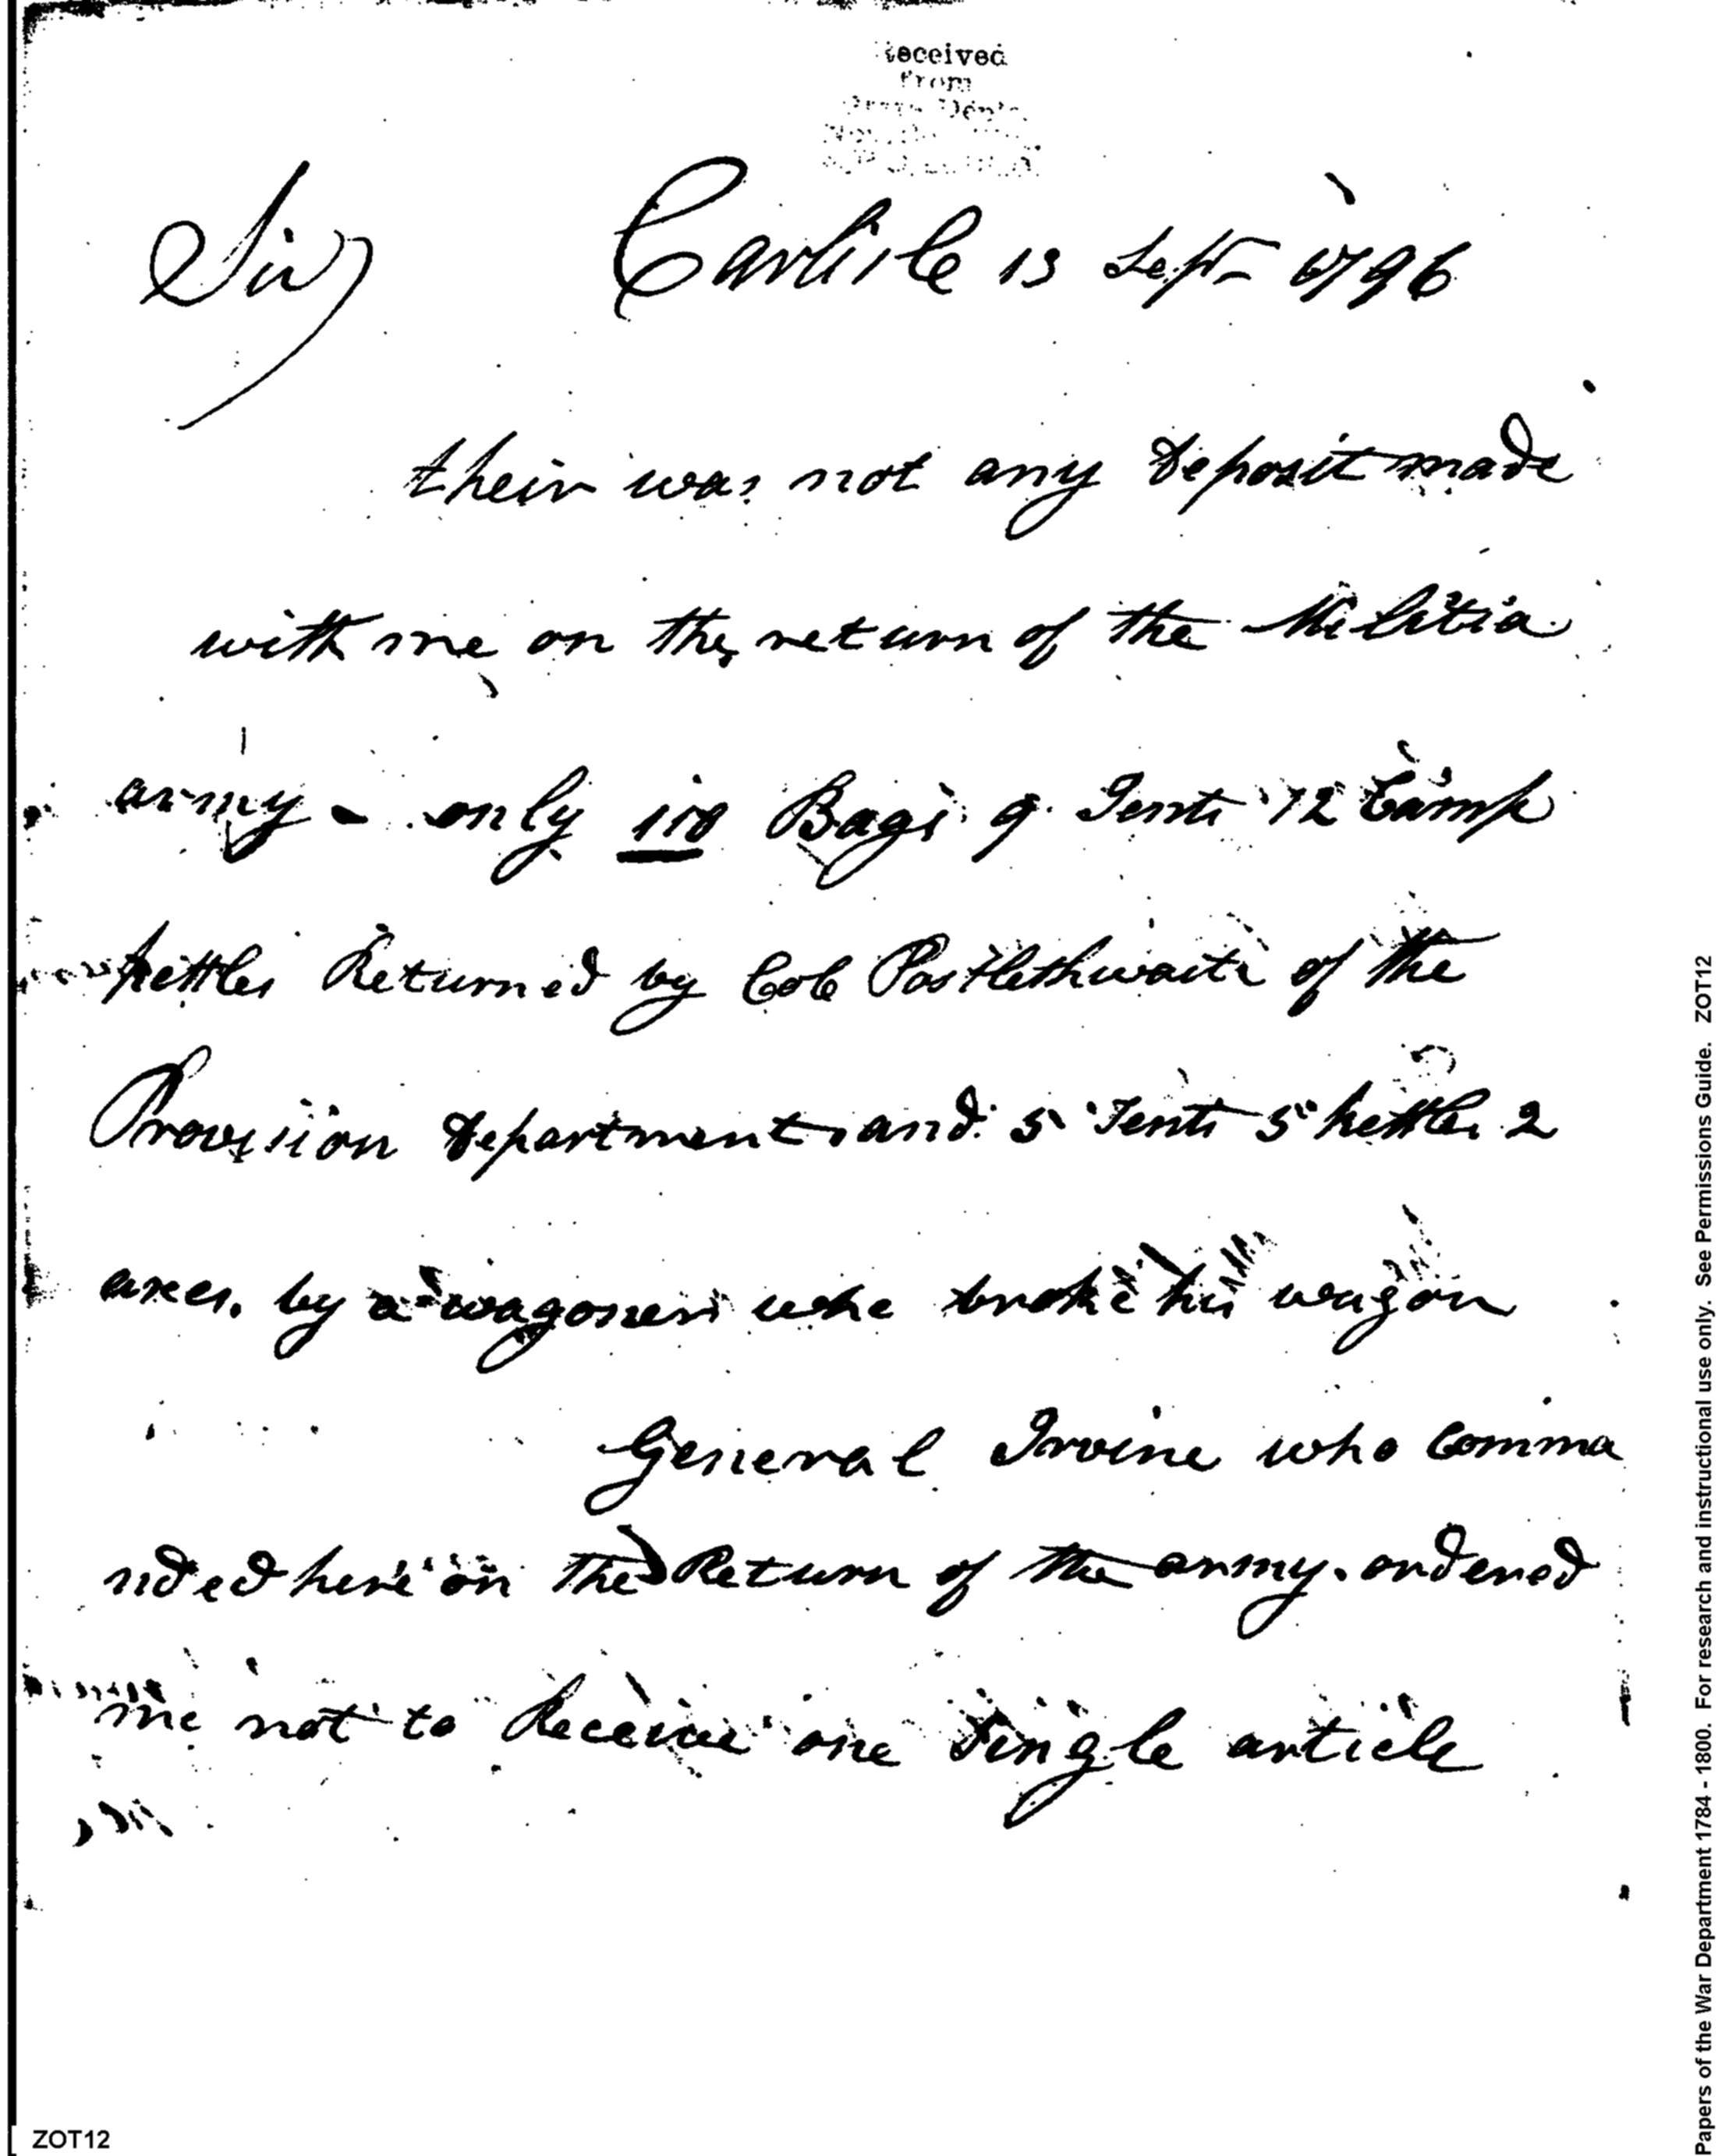 Received
From
Sir Carlisle 13 Sept 1796
their was not any Deposit made
with me on the return of the Militia
army - only 110 Bags 9 Tents 12 Camp
kettles Returned by Col Postlethwaite of the
Provision Department and 5 Tents 5 kettles 2
axes. by a wagoner who broke his wagon
General Irvine who comma
nded here on the Return of the army. ordered
me not to Receive one Single article
ZOT12
Papers of the War Department 1784 - 1800. For research and instructional use only. See Permissions Guide. ZOT12